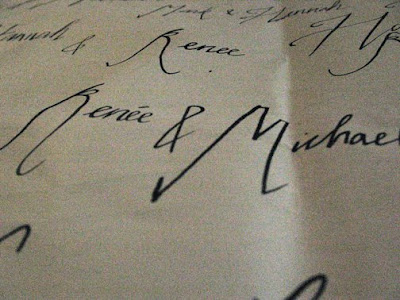 Mark & Hannah
Hannah & Renee
Renée & Michael